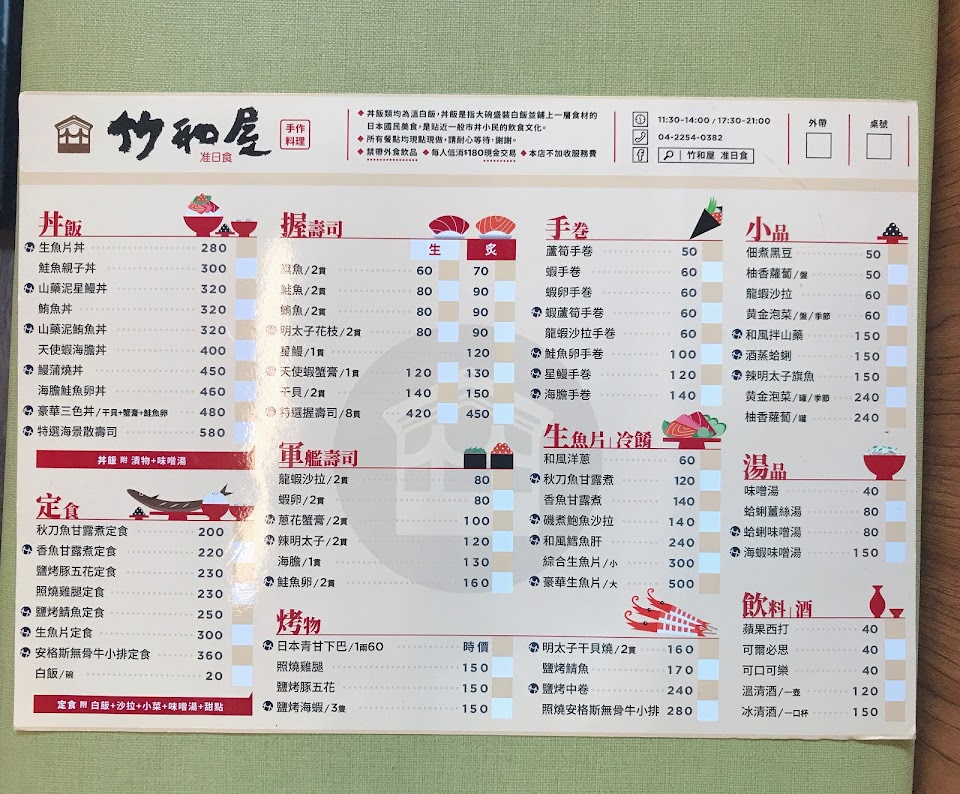 竹和屋
准日食
手作
料理
丼飯類均為溫白飯,丼飯是指大碗盛裝白飯並鋪上一層食材的
日本國民美食,是貼近一般市井小民的飲食文化。
所有餐點均現點現做,請耐心等待,謝謝。
禁帶外食飲品 每人低消$180現金交易 本店不加收服務費
11:30-14:00 / 17:30-21:00
04-2254-0382
竹和屋 准日食
外帶
桌號
丼飯
生魚片丼 280
鮭魚親子丼 300
山藥泥星鰻丼 320
鮪魚丼 320
山藥泥鮪魚丼 320
天使蝦海膽丼 400
鰻蒲燒丼 450
海膽鮭魚卵丼 460
豪華三色丼/干貝+蟹膏+鮭魚卵 480
特選海景散壽司 580
丼飯 附 漬物+味噌湯
定食
秋刀魚甘露煮定食 200
香魚甘露煮定食 220
鹽烤豚五花定食 230
照燒雞腿定食 230
鹽烤鯖魚定食 250
生魚片定食 300
安格斯無骨牛小排定食 360
白飯/碗 20
定食 附 白飯+沙拉+小菜+味噌湯+甜點
握壽司
生 炙
旗魚/2貫 60 70
鮭魚/2貫 80 90
鮪魚/2貫 80 90
明太子花枝/2貫 80 90
星鰻/1貫 120
天使蝦蟹膏/1貫 120 130
干貝/2貫 140 150
特選握壽司/8貫 420 450
軍艦壽司
龍蝦沙拉/2貫 80
蝦卵/2貫 80
蔥花蟹膏/2貫 100
辣明太子/2貫 120
海膽/1貫 130
鮭魚卵/2貫 160
烤物
日本青甘下巴/1兩60 時價
照燒雞腿 150
鹽烤豚五花 150
鹽烤海蝦/3隻 150
明太子干貝燒/2貫 160
鹽烤鯖魚 170
鹽烤中卷 240
照燒安格斯無骨牛小排 280
手巻
蘆筍手巻 50
蝦手巻 60
蝦卵手巻 60
蝦蘆筍手巻 60
龍蝦沙拉手巻 60
鮭魚卵手巻 100
星鰻手巻 120
海膽手巻 140
生魚片|冷餚
和風洋蔥 60
秋刀魚甘露煮 120
香魚甘露煮 140
磯煮鮑魚沙拉 140
和風鱈魚肝 240
綜合生魚片/小 300
豪華生魚片/大 500
小品
佃煮黑豆 50
柚香蘿蔔/盤 50
龍蝦沙拉 60
黃金泡菜/盤/季節 60
和風拌山藥 150
酒蒸蛤蜊 150
辣明太子旗魚 150
黃金泡菜/罐/季節 240
柚香蘿蔔/罐 240
湯品
味噌湯 40
蛤蜊薑絲湯 80
蛤蜊味噌湯 80
海蝦味噌湯 150
飲料|酒
蘋果西打 40
可爾必思 40
可口可樂 40
溫清酒/一壺 120
冰清酒/一口杯 150